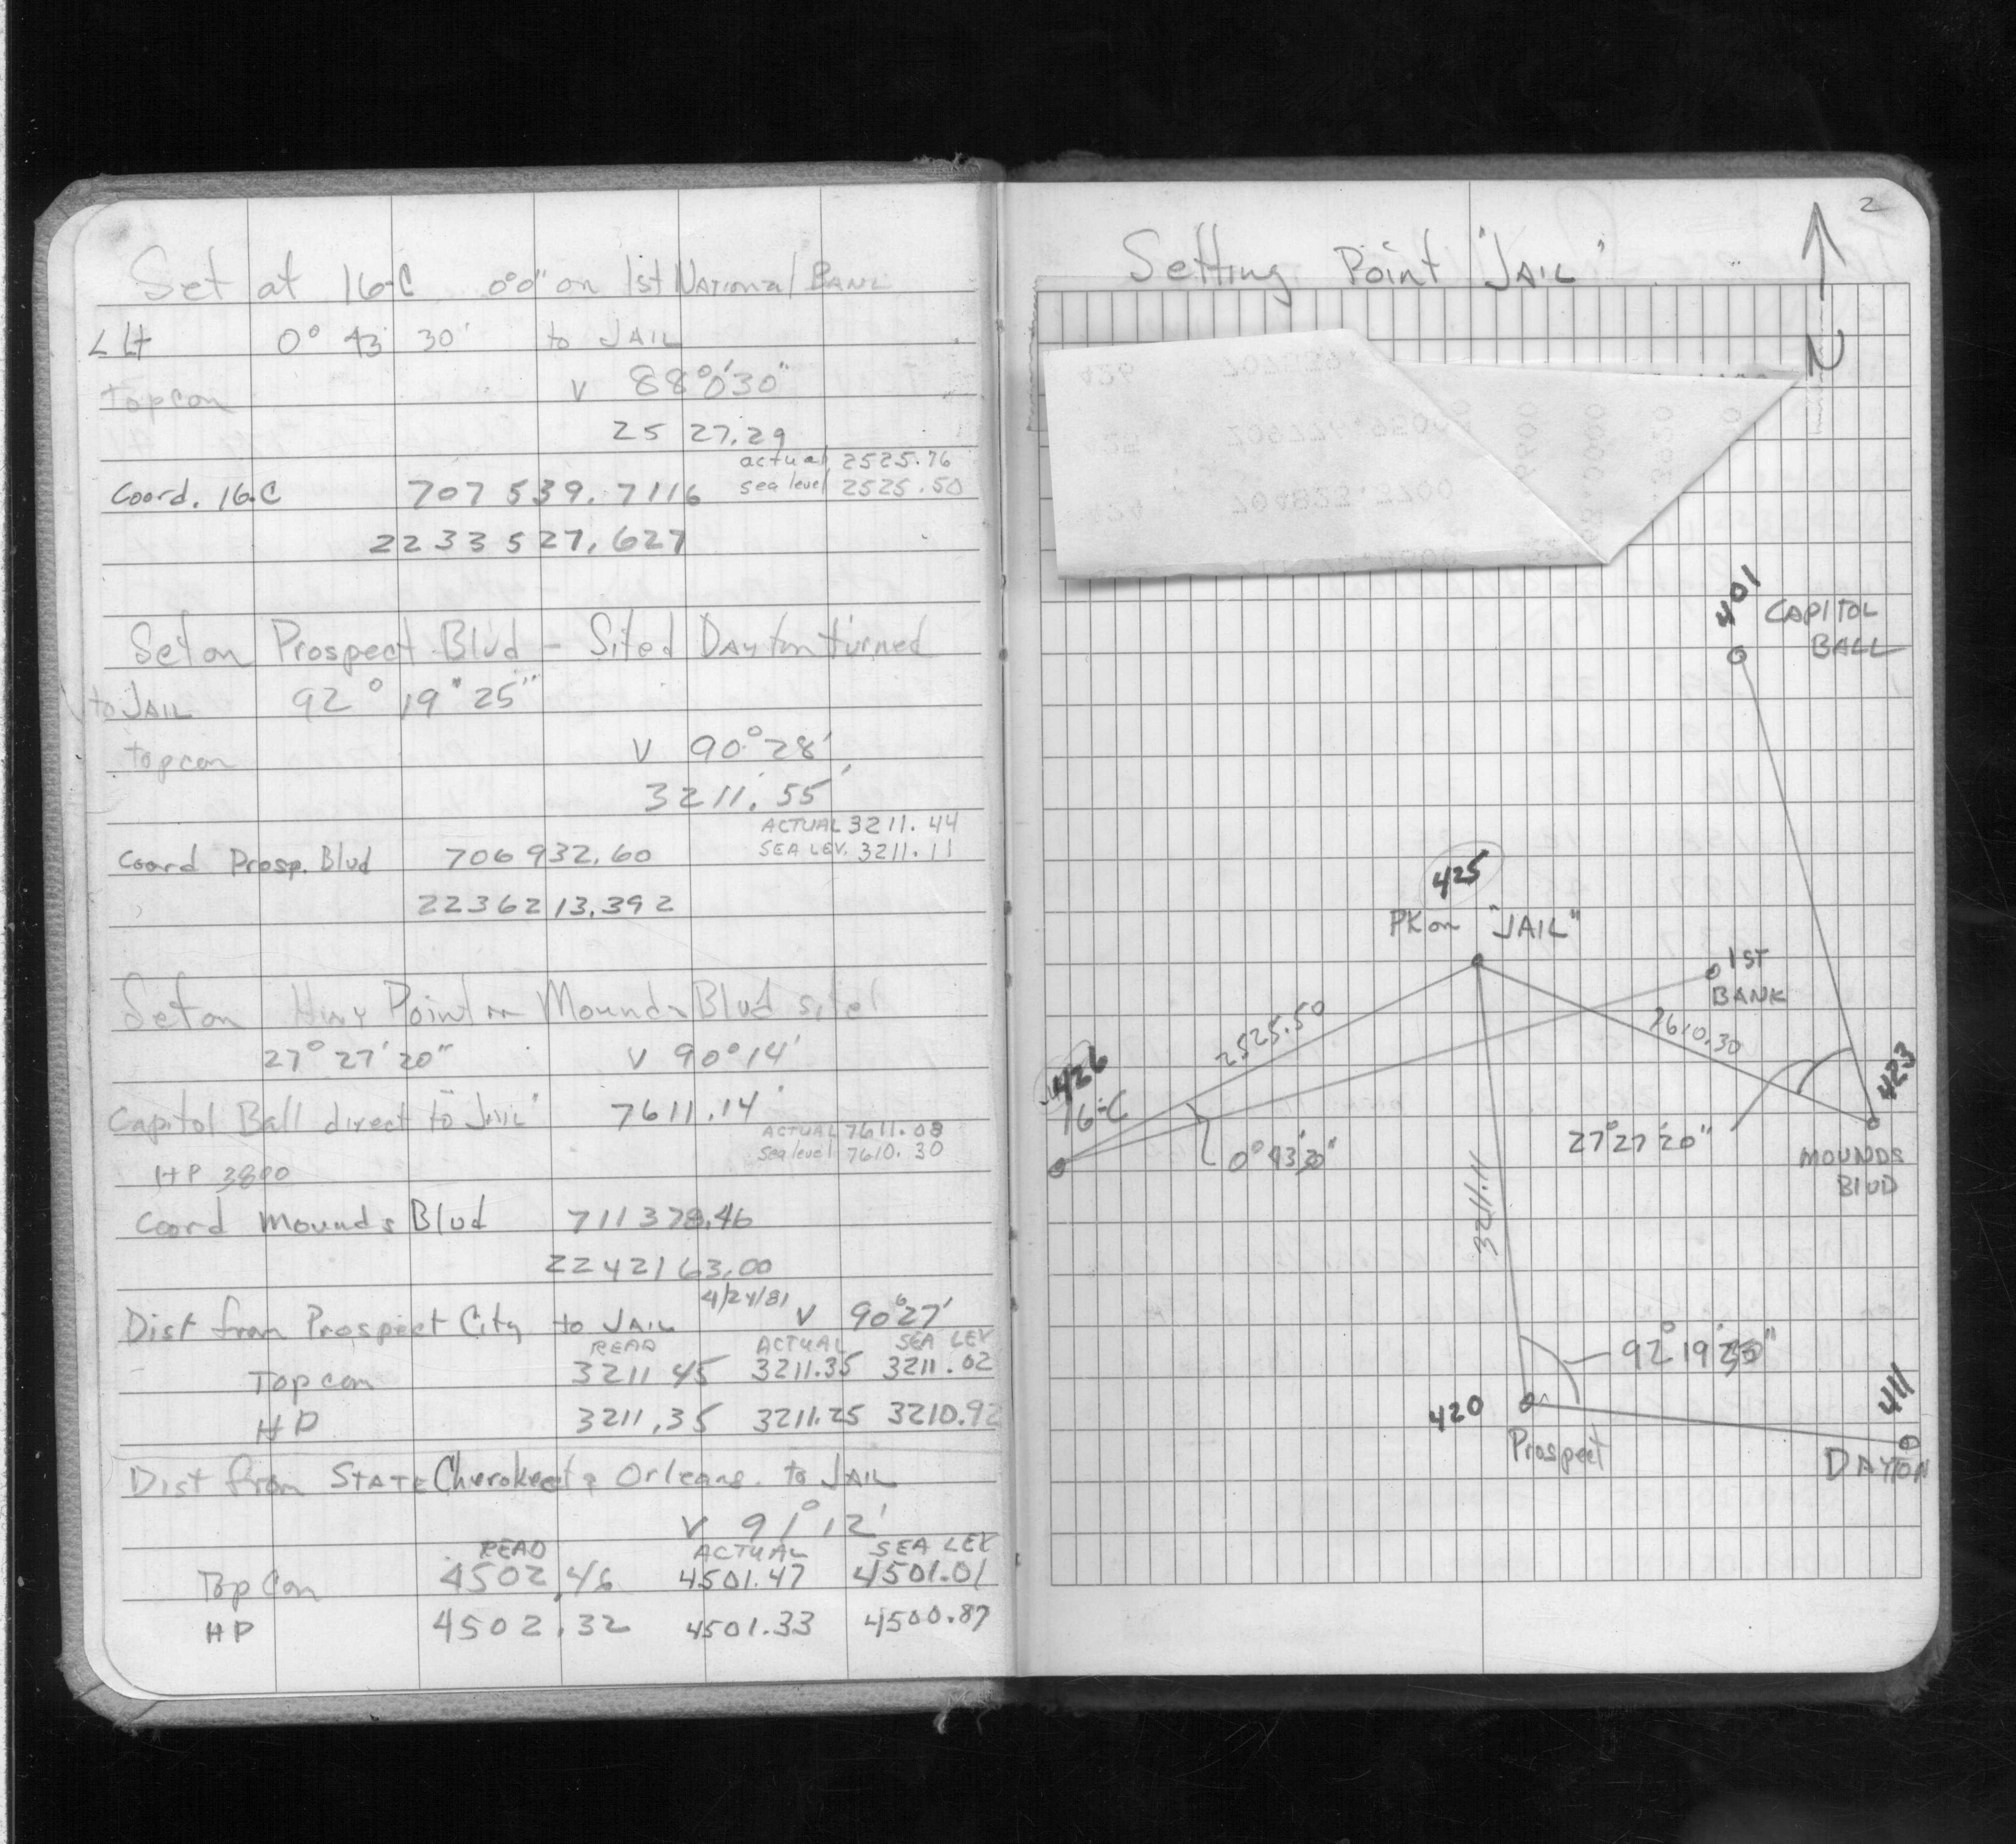 Set at 16-C 0°0" on 1st National Bank
∠ Lt 0° 43' 30" to JAIL
Topcon V 88°0'30"
2527.29
actual 2525.76
Coord. 16-C 707 539.7116 sea level 2525.50
2233 527.627
Set on Prospect Blvd - Sited Dayton turned
to JAIL 92° 19" 25"
topcon V 90°28'
3211.55'
ACTUAL 3211.44
Coord Prosp. Blvd 706 932.60 SEA LEV. 3211.11
2236213.392
Set on Hwy Point on Mounds Blvd sited
27° 27' 20" V 90°14'
Capitol Ball direct to "JAIL" 7611.14'
ACTUAL 7611.08
HP 3800 Sea level 7610.30
Coord Mounds Blvd 711378.46
2242163.00
4/24/81
Dist from Prospect City to JAIL V 90°27'
READ ACTUAL SEA LEV
Topcon 3211.45 3211.35 3211.02
HP 3211.35 3211.25 3210.92
Dist from STATE Cherokee & Orleans to JAIL
V 91°12'
READ ACTUAL SEA LEV
TopCon 4502.46 4501.47 4501.01
HP 4502.32 4501.33 4500.87
2
Setting Point "JAIL"
N
426
425
424
401
CAPITOL
BALL
425
PK on "JAIL"
1ST
BANK
2525.50
7610.30
426
16-C
423
0° 43' 30"
27°27'20"
MOUNDS
BLVD
3211.11
92° 19' 25"
420
411
Prospect
DAYTON